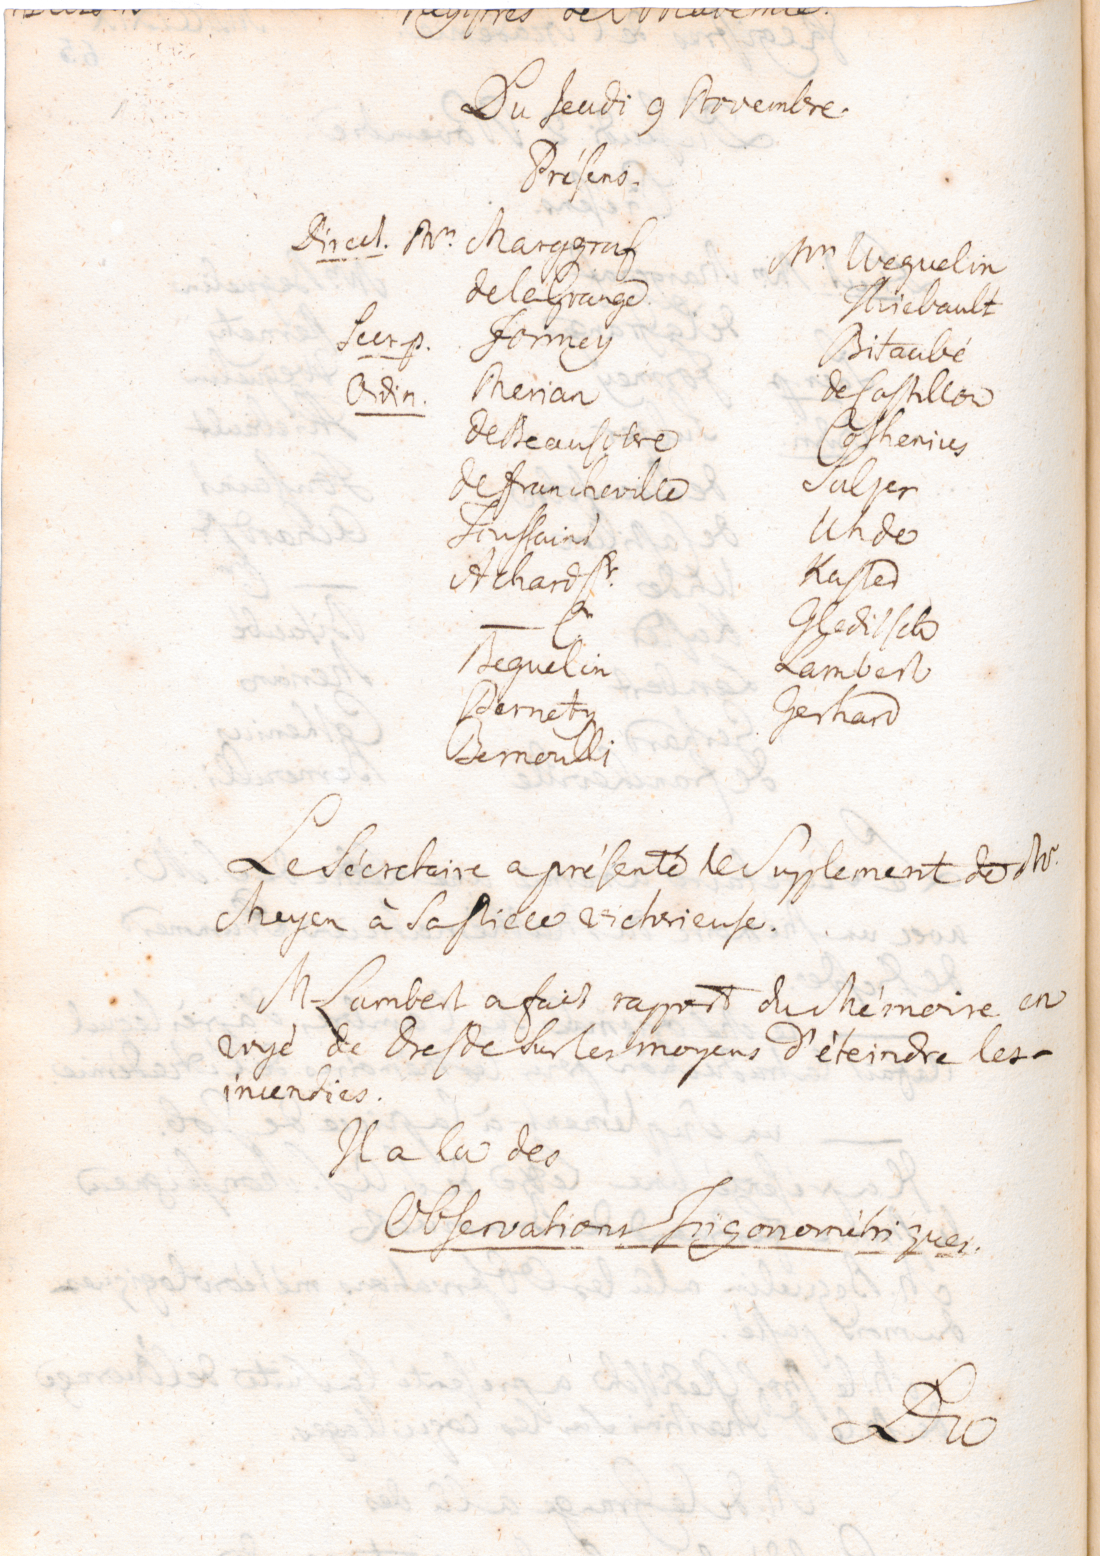 Registres de l'Academie.
Du Jeudi 9 Novembre.
Présens.
Direct. Mrs. Marggraf
de la Grange
Secr. p. Formey
Ordin. Merian
de Beausobre
de Francheville
Toussaint
Achard Sr.
— Jr
Beguelin
Pernety
Bernoulli
Mrs Weguelin
Thiebault
Bitaubé
de Castillon
Cothenius
Sulzer
Uhde
Rasted
Gleditsch
Lambert
Gerhard
Le Sécretaire a présenté le Supplement de Mr.
Meyen à sa piece victorieuse.
M Lambert a fait rapport du Mémoire en
voyé de Dresde sur les moyens d'éteindre les
incendies.
Il a lu des
Observations Trigonométriques.
Du